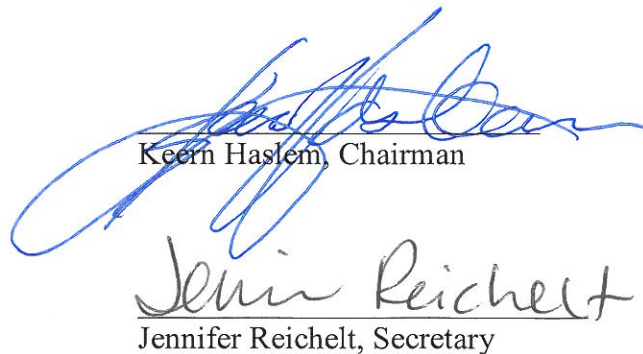 Keern Haslem, Chairman
Jenni Reichelt
Jennifer Reichelt, Secretary